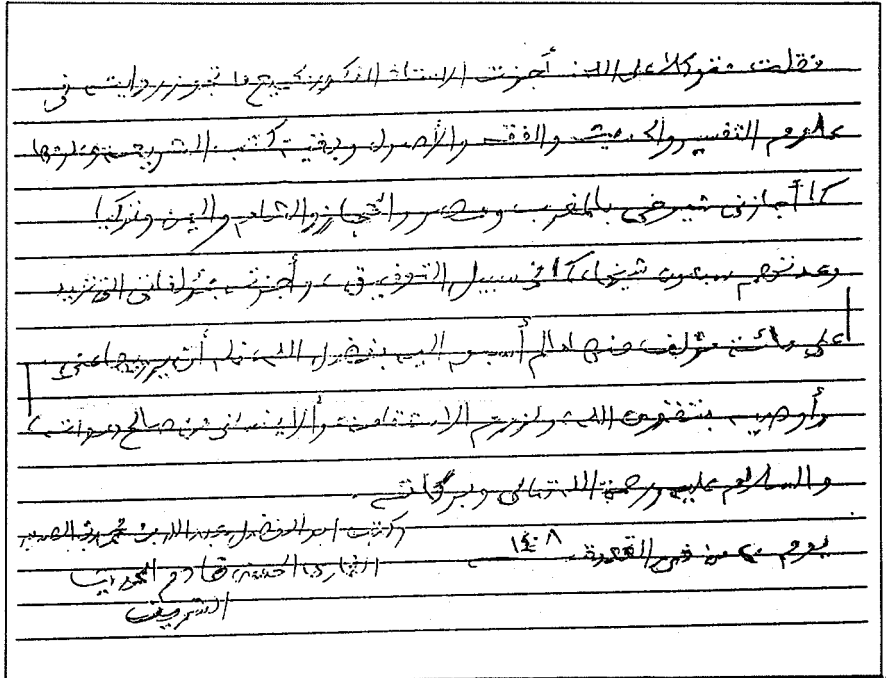 فقلت متوكلا على الله: أجزت الأستاذ المذكور بجميع ما تجوز روايته في
علوم التفسير والحديث والفقه والأصول وبقية كتب الشريعة وعلومها
كما أجازني شيوخي بالمغرب ومصر والحجاز والشام واليمن وتركيا
وعدتهم سبعون شيخا، كما في سبيل التوفيق، وأجزته بمؤلفاتي التي تزيد
على مائة مؤلف، منها ما لم أسبق إليه بفضل الله، فله أن يرويها عني،
وأوصيه بتقوى الله ولزوم الاستقامة وألا ينساني من صالح دعواته،
والسلام عليه ورحمة الله تعالى وبركاته.
وكتب أبو الفضل عبد الله بن محمد بن الصديق
يوم من ذي القعدة ١٤٠٨
الغماري الحسني خادم الحديث
الشريف